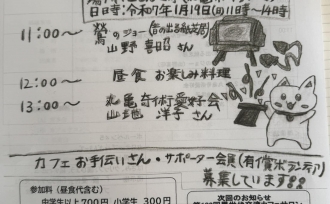 日時:令和7年1月19日(日)11時～14時
11:00～ 鶯のジョー(昔の出る紙芝居)
山野 喜昭 さん
12:00～ 昼食 お楽しみ料理
13:00～ 丸亀奇術愛好会
山地 洋子 さん
カフェお手伝いさん・サポーター会員(有償ボランティア)
募集しています!!
参加料(昼食代含む)
中学生以上700円 小学生 300円
次回のお知らせ